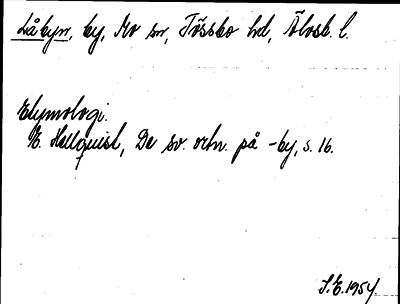 Låbyn, by, Mo sn, Tössbo hd, Älvsb. l.
Etymologi.
E. Hellquist, De sv. ortn. på -by, s. 16.
S.E. 1954.